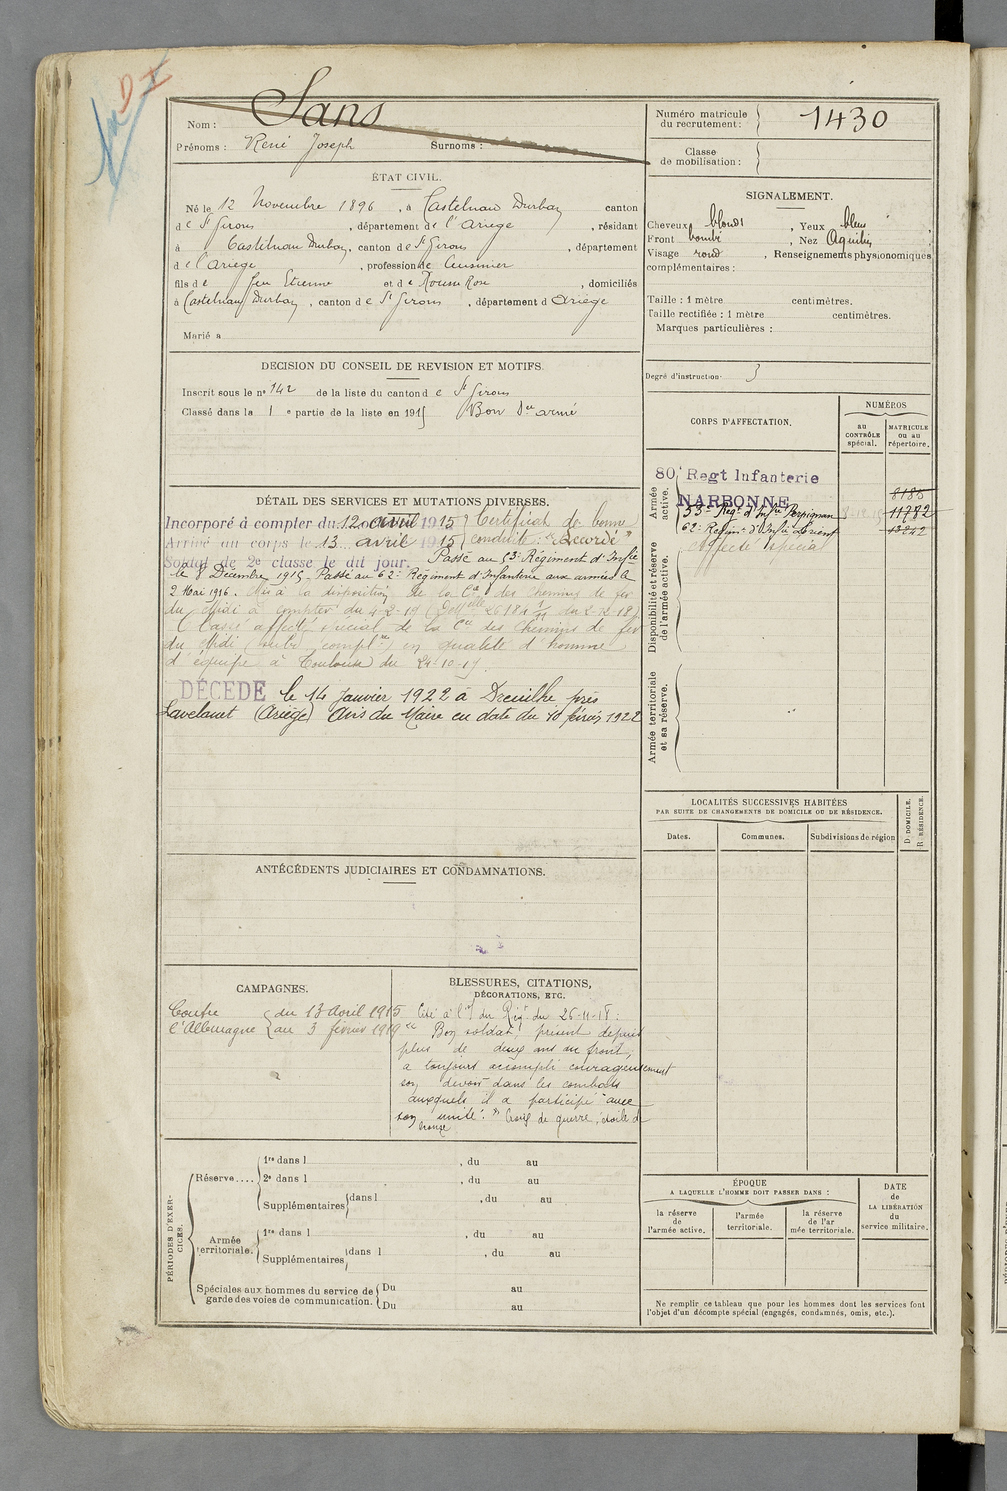 D I
Nom : Sans
Prénoms : René Joseph Surnoms :
Numéro matricule du recrutement : 1430
Classe de mobilisation :
ÉTAT CIVIL.
Né le 12 Novembre 1896, à Castelnau Durban canton
de St Girons, département de l'Ariège, résidant
à Castelnau Durban, canton de St Girons, département
de l'Ariège, profession de Cuisinier
fils de feu Etienne et de Rousse Rose, domiciliés
à Castelnau Durban, canton de St Girons, département d Ariège
Marié a
SIGNALEMENT.
Cheveux blonds, Yeux bleus
Front bombé, Nez Aquilin
Visage rond, Renseignements physionomiques
complémentaires :
Taille : 1 mètre centimètres.
Taille rectifiée : 1 mètre centimètres.
Marques particulières :
Degré d'instruction : 3
DECISION DU CONSEIL DE REVISION ET MOTIFS.
Inscrit sous le no 142 de la liste du canton de St Girons
Classé dans la 1e partie de la liste en 1915 Bon Sce armé
DÉTAIL DES SERVICES ET MUTATIONS DIVERSES.
Incorporé à compter du 12 avril 1915 Certificat de bonne
Arrivé au corps le 13 avril 1915 conduite : "Accordé"
Soldat de 2e classe le dit jour. Passé au 53e Régiment d'Infie
le 8 Décembre 1915. Passé au 62e Régiment d'Infanterie aux armées le
2 Mai 1916. Mis à la disposition de la Cie des Chemins de fer
du Midi à compter du 4-2-19
Classé affecté spécial de la Cie des Chemins de fer
du Midi en qualité d'homme
d'équipe à Toulouse du 24-10-19.
DÉCÉDÉ le 14 Janvier 1922 à Dreuilhe près
Lavelanet (Ariège) Avis du Maire en date du 10 février 1922
CORPS D'AFFECTATION.
NUMÉROS
au CONTRÔLE spécial.
MATRICULE ou au répertoire.
Armée active.
80e Regt Infanterie
NARBONNE 8185
53e Regt d'Infie Perpignan 11782
62e Regimt d'Infie Lorient
Affecté spécial
Disponibilité et réserve de l'armée active.
Armée territoriale et sa réserve.
LOCALITÉS SUCCESSIVES HABITÉES
PAR SUITE DE CHANGEMENTS DE DOMICILE OU DE RÉSIDENCE.
Dates.
Communes.
Subdivisions de région
D. DOMICILE.
R. RÉSIDENCE.
ANTÉCÉDENTS JUDICIAIRES ET CONDAMNATIONS.
CAMPAGNES.
Contre du 13 Avril 1915
l'Allemagne au 3 février 1919
BLESSURES, CITATIONS,
DÉCORATIONS, ETC.
Cité à l'O du Régt du 26-11-18 :
"Bon soldat, présent depuis
plus de deux ans au front,
a toujours accompli courageusement
son devoir dans les combats
auxquels il a participé avec
son unité." Croix de guerre, étoile de
bronze
PÉRIODES D'EXERCICES.
Réserve....
1re dans l , du au
2e dans l , du au
Supplémentaires dans l , du au
Armée territoriale.
1re dans l , du au
Supplémentaires dans l , du au
Spéciales aux hommes du service de
garde des voies de communication.
Du au
Du au
ÉPOQUE
A LAQUELLE L'HOMME DOIT PASSER DANS :
la réserve de l'armée active.
l'armée territoriale.
la réserve de l'armée territoriale.
DATE de LA LIBÉRATION du service militaire.
Ne remplir ce tableau que pour les hommes dont les services font
l'objet d'un décompte spécial (engagés, condamnés, omis, etc.).